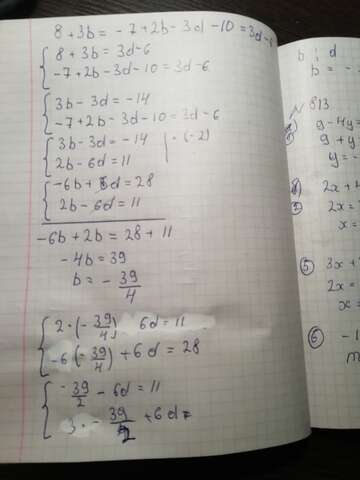 8 + 3b = -7 + 2b - 3d - 10 = 3d - 6
8 + 3b = 3d - 6
-7 + 2b - 3d - 10 = 3d - 6
3b - 3d = -14
-7 + 2b - 3d - 10 = 3d - 6
3b - 3d = -14 | · (-2)
2b - 6d = 11
-6b + 6d = 28
2b - 6d = 11
-6b + 2b = 28 + 11
-4b = 39
b = - 39/4
2 · (- 39/4) 6d = 11
-6 (- 39/4) + 6d = 28
- 39/2 - 6d = 11
3 · - 39/2 + 6d =
b ; d
b = -
N 813.
y - 4y =
y + y
y = -
2x + 4
2x =
x =
5 3x +
2x =
x =
6 -1